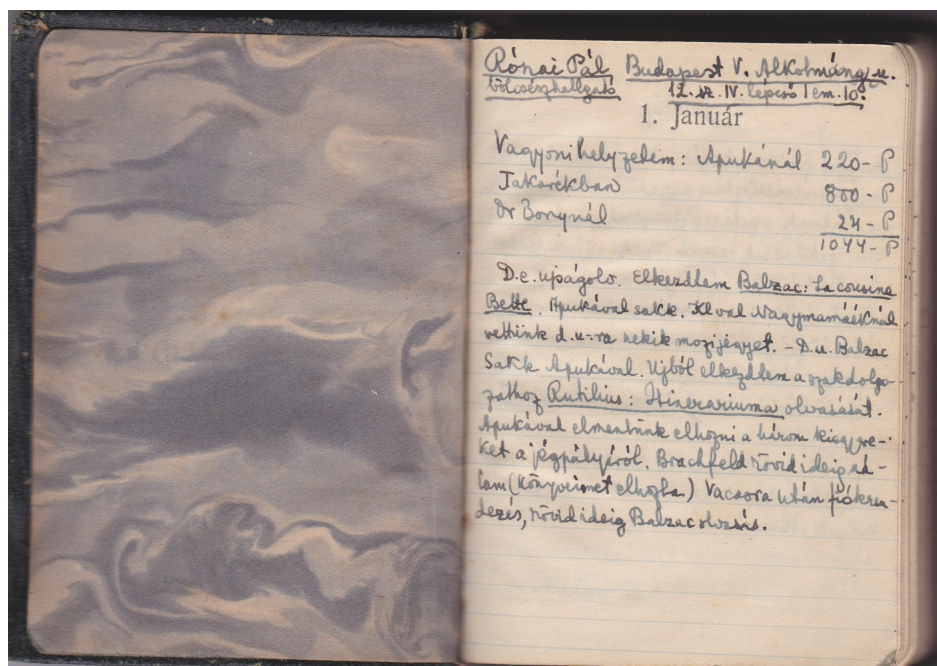 Rónai Pál Budapest V. Alkotmány u.
bölcsészhallgató 12. sz. IV. lépcső I em. 10.
1. Január
Vagyoni helyzetem: Apukánál 220- P
Takarékban 800- P
Dr Bonynál 24- P
1044- P
D.e. ujságolv. Elkezdtem Balzac: La cousine
Bette. Apukával sakk. Klval Nagymamáéknál
vettünk d.u-ra nekik mozijegyet. - D.u. Balzac
Sakk Apukával. Ujból elkezdtem a szakdolgo-
zathoz Rutilius: Itinerariuma olvasását.
Apukával elmentünk elhozni a három kisgyre-
ket a jégpályáról. Brachfeld rövid ideig ná-
lam (könyveimet elhozta) Vacsora után fiókren-
dezés, rövid ideig Balzac olvasás.